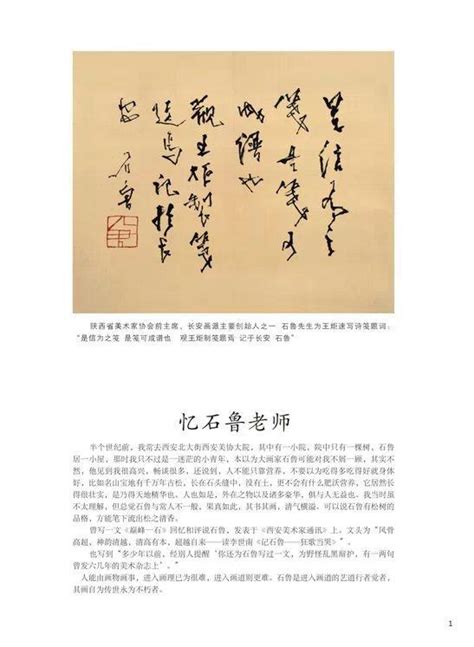 陕西省美术家协会前主席、长安画派主要创始人之一 石鲁先生为王炬速写诗笺题词:
“是信为之笺 是笺可成谱也 观王炬制笺题焉 记于长安 石鲁”
忆石鲁老师
半个世纪前，我常去西安北大街西安美协大院，其中有一小院，院中只有一棵树、石鲁
居一小屋，那时我只不过是一迷茫的小青年，本以为大画家石鲁可能对我不屑一顾，其实不
然，他见到我很高兴，畅谈很多，还说到，人不能只靠营养，不要以为吃得多吃得好就身体
好，比如名山宝地有千万年古松，长在石头缝中，没有土，更不会有什么肥沃营养，它居然长
得很壮实，是乃得天地精华也，人也如是，外在之物以及诸多豪华，俱与人无益也。我当时虽
不太理解，但总觉石鲁与常人不一般，果真如此，其书其画，清气横溢，可以说石鲁有松树的
品格，方能笔下流出松之清香。
曾写一文《巅峰一石》回忆和评说石鲁，发表于《西安美术家通讯》上。文头为“风骨
高超，神韵清越，清高有本，超越自来——读李世南《记石鲁——狂歌当哭》”。
也写到“多少年以前，经别人提醒‘你还为石鲁写过一文，为野怪乱黑辩护，有一两句
曾发六几年的美术杂志上’。”
人能由画物画事，进入画理已为很难，进入画道则更难。石鲁是进入画道的艺道行者觉者，
其画自为传世永为不朽者。
1